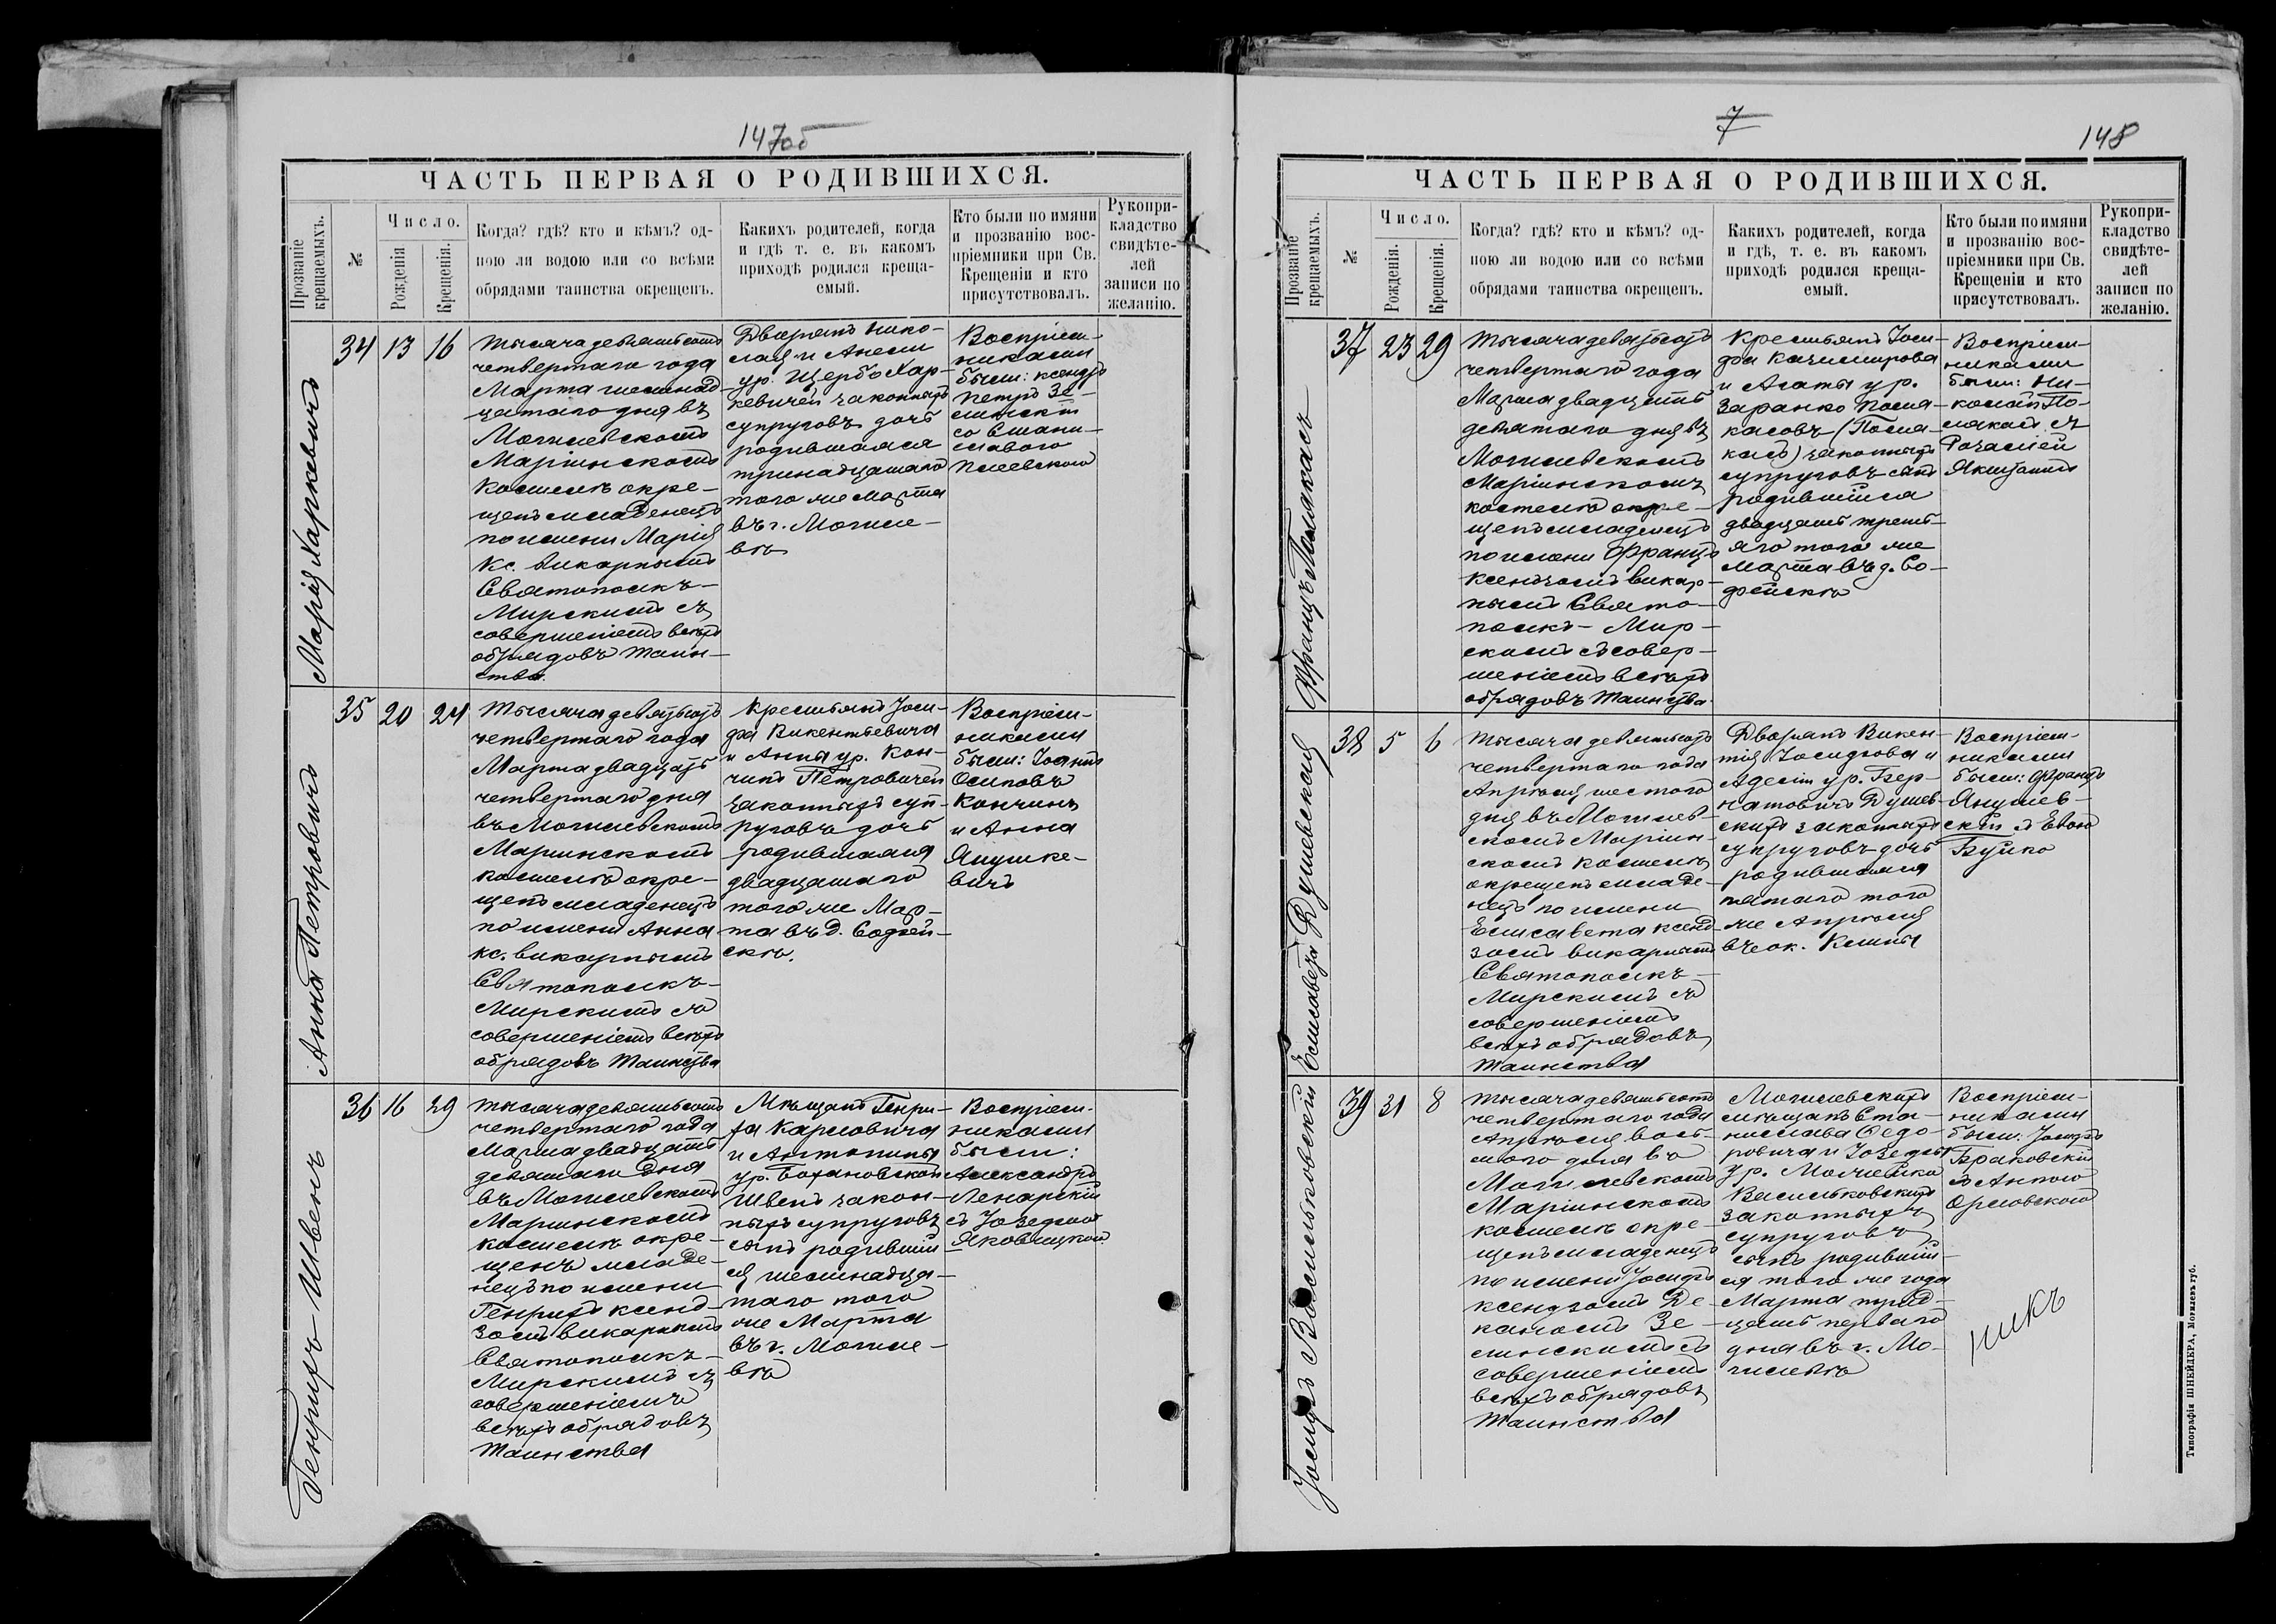 147об
ЧАСТЬ ПЕРВАЯ О РОДИВШИХСЯ.
Прозваніе крещаемыхъ.
№
Число.
Рожденія
Крещенія.
Когда? гдѣ? кто и кѣмъ? од-
ною ли водою или со всѣми
обрядами таинства окрещенъ.
Какихъ родителей, когда
и гдѣ т. е. въ какомъ
приходѣ родился креща-
емый.
Кто были по имяни
и прозванію вос-
пріемники при Св.
Крещеніи и кто
присутствовалъ.
Рукопри-
кладство
свидѣте-
лей
записи по
желанію.
Марія Харкевичъ
34 13 16
Тысяча девятьсотъ
четвертаго года
Марта шестнад-
цатаго дня въ
Могилевскомъ
Маріинскомъ
костелѣ окре-
щенъ младенецъ
по имени Марія
Кс. викарнымъ
Святополкъ-
Мирскимъ съ
совершеніемъ всѣхъ
обрядовъ таин-
ства.
Дворянъ Нико-
лая и Анели
ур. Щербо Хар-
кевичей законныхъ
супруговъ дочь
родившаяся
тринадцатаго
того же Марта
въ г. Могиле-
вѣ
Воспріем-
никами
были: ксендзъ
Петръ Зе-
линскій
со Стани-
славою
Анна Петровичъ
35 20 24
Тысяча девятьсотъ
четвертаго года
Марта двадцать
четвертаго дня
въ Могилевскомъ
Маріинскомъ
костелѣ окре-
щенъ младенецъ
по имени Анна
кс. викарнымъ
Святополкъ-
Мирскимъ съ
совершеніемъ всѣхъ
обрядовъ Таинства
Крестьянъ Іоси-
фа Викентьевича
и Анны ур. Кон-
чинъ Петровичей
законныхъ суп-
руговъ дочь
родившаяся
двадцатаго
того же Мар-
та въ д. Софей-
скѣ.
Воспріем-
никами
были: Іоаннъ
Осиповъ
Кончинъ
и Анна
Янушке-
вичъ
Генрихъ Швенъ
36 16 29
Тысяча девятьсотъ
четвертаго года
Марта двадцать
девятаго дня
въ Могилевскомъ
Маріинскомъ
костелѣ окре-
щенъ младе-
нецъ по имени
Генрихъ ксенд-
зомъ викарнымъ
Святополкъ-
Мирскимъ съ
совершеніемъ
всѣхъ обрядовъ
Таинства
Мѣщанъ Генри-
ха Карловича
и Антонины
ур. Бохановской
Швенъ закон-
ныхъ супруговъ
сынъ родившій-
ся шестнадца-
таго того
же Марта
въ г. Могиле-
вѣ
Воспріем-
никами
были:
Александръ
Ленарскій
съ Юзефою
Яковицкой
7
148
ЧАСТЬ ПЕРВАЯ О РОДИВШИХСЯ.
Прозваніе крещаемыхъ.
№
Число.
Рожденія.
Крещенія.
Когда? гдѣ? кто и кѣмъ? од-
ною ли водою или со всѣми
обрядами таинства окрещенъ.
Какихъ родителей, когда
и гдѣ, т. е. въ какомъ
приходѣ родился креща-
емый.
Кто были по имяни
и прозванію вос-
пріемники при Св.
Крещеніи и кто
присутствовалъ.
Рукопри-
кладство
свидѣте-
лей
записи по
желанію.
Францъ Полякасъ
37 23 29
Тысяча девятьсотъ
четвертаго года
Марта двадцать
девятаго дня въ
Могилевскомъ
Маріинскомъ
костелѣ окре-
щенъ младенецъ
по имени Францъ
ксендзомъ викар-
нымъ Свято-
полкъ-Мир-
скимъ съ совер-
шеніемъ всѣхъ
обрядовъ Таинства
Крестьянъ Іоси-
фа Казимирова
и Агаты ур.
Заранко Поля-
касовъ (Поля-
касъ) законныхъ
супруговъ сынъ
родившійся
двадцать треть-
яго того же
Марта въ д. Со-
фейскѣ
Воспріем-
никами
были: Ни-
колай По-
лякасъ съ
Розаліей
Елисавета Душевская
38 5 6
Тысяча девятьсотъ
четвертаго года
Апрѣля шестого
дня въ Могилев-
скомъ Маріин-
скомъ костелѣ
окрещенъ младе-
нецъ по имени
Елисавета ксенд-
зомъ викарнымъ
Святополкъ-
Мирскимъ съ
совершеніемъ
всѣхъ обрядовъ
Таинства
Дворянъ Викен-
тія Іосифова и
Аделіи ур. Бер-
натовичъ Душев-
скихъ законныхъ
супруговъ дочь
родившаяся
пятаго того
же Апрѣля
въ ок. Климы
Воспріем-
никами
были: Францъ
Янушев-
скій съ Евою
Бушко
Іосифъ Васильковскій
39 31 8
Тысяча девятьсотъ
четвертаго года
Апрѣля вось-
мого дня въ
Могилевскомъ
Маріинскомъ
костелѣ окре-
щенъ младенецъ
по имени Іосифъ
ксендзомъ Де-
каномъ Зе-
линскимъ съ
совершеніемъ
всѣхъ обрядовъ
Таинства
Могилевскихъ
мѣщанъ Ста-
нислава Федо-
ровича и Юзефы
ур. Молчейко
Васильковскихъ
законныхъ
супруговъ
сынъ родившій-
ся того же года
Марта трид-
цать перваго
дня въ г. Мо-
гилевѣ
Воспріем-
никами
были: Іосифъ
Браковскій
съ Анною
Орловскою
Типографія ШНЕЙДЕРА, Могилевъ губ.